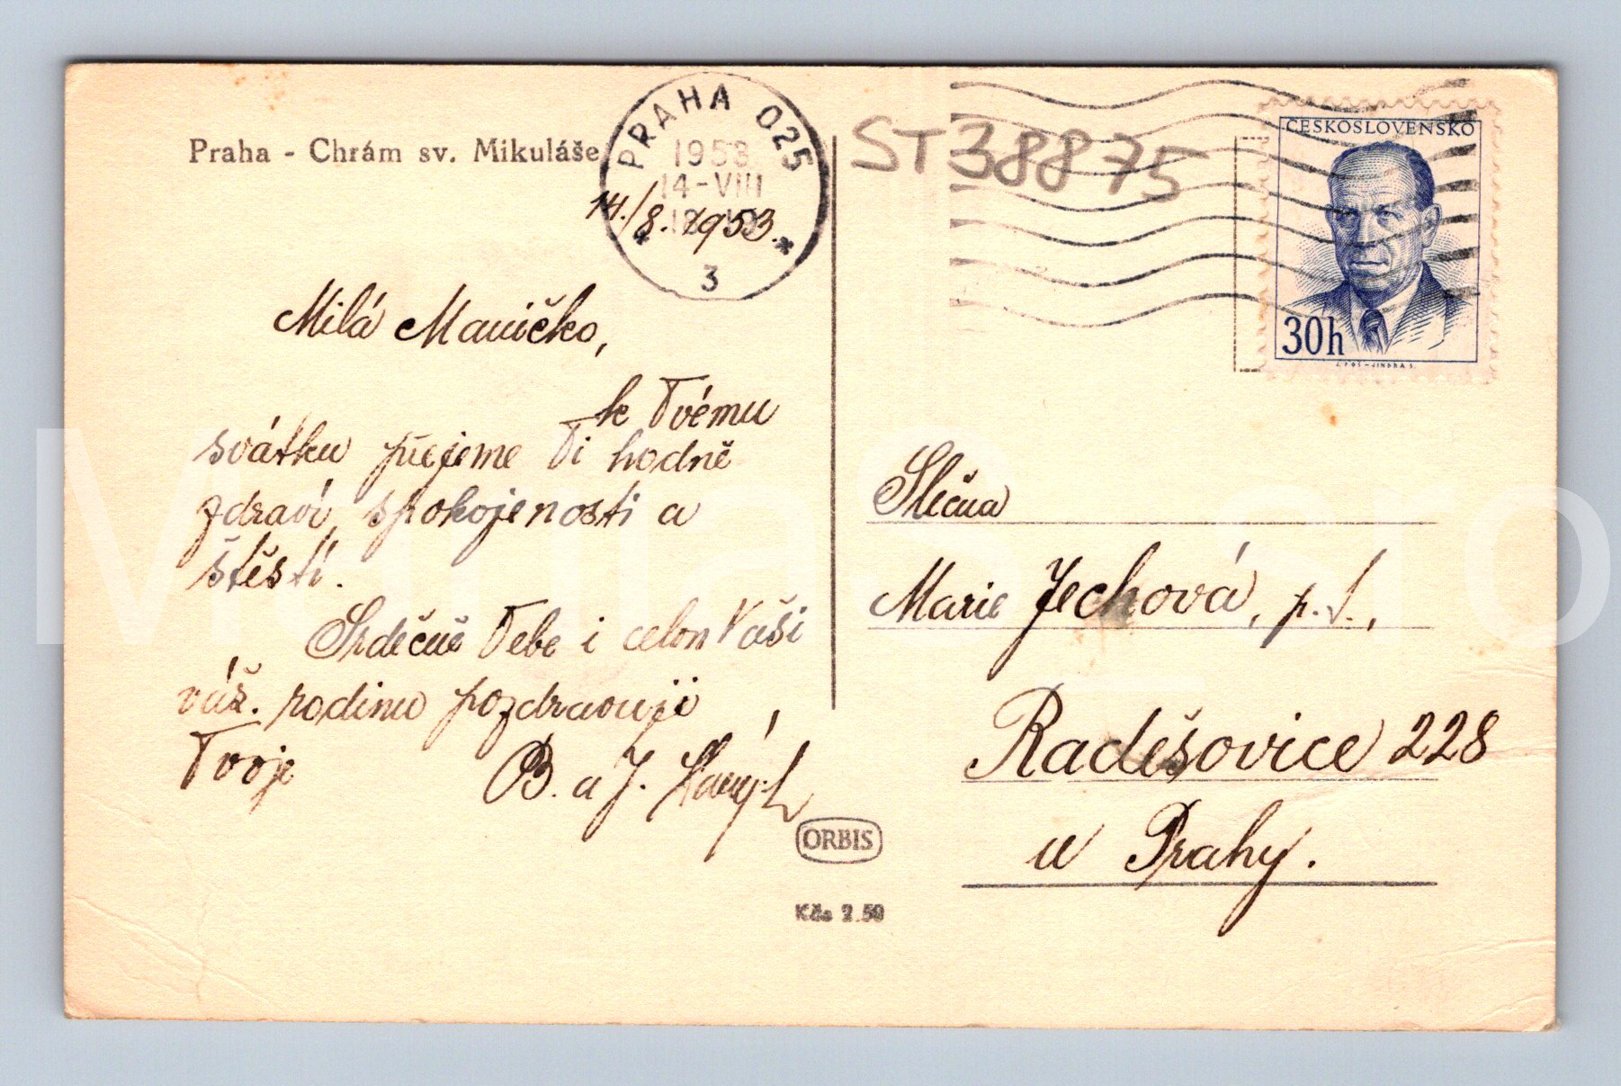 Praha - Chrám sv. Mikuláše
PRAHA 025
1953
14-VIII
3
14./8. 1953.
ST38875
ČESKOSLOVENSKO
30h
Milá Maničko,
k Tvému
svátku přejeme Ti hodně
zdraví, spokojenosti a
štěstí.
Srdečně Tebe i celou Vaši
váž. rodinu pozdravují
Tvoje
B. a J.
Slečna
Marie Jechová, p. t.,
Radešovice 228
u Prahy.
ORBIS
Kčs 2.50